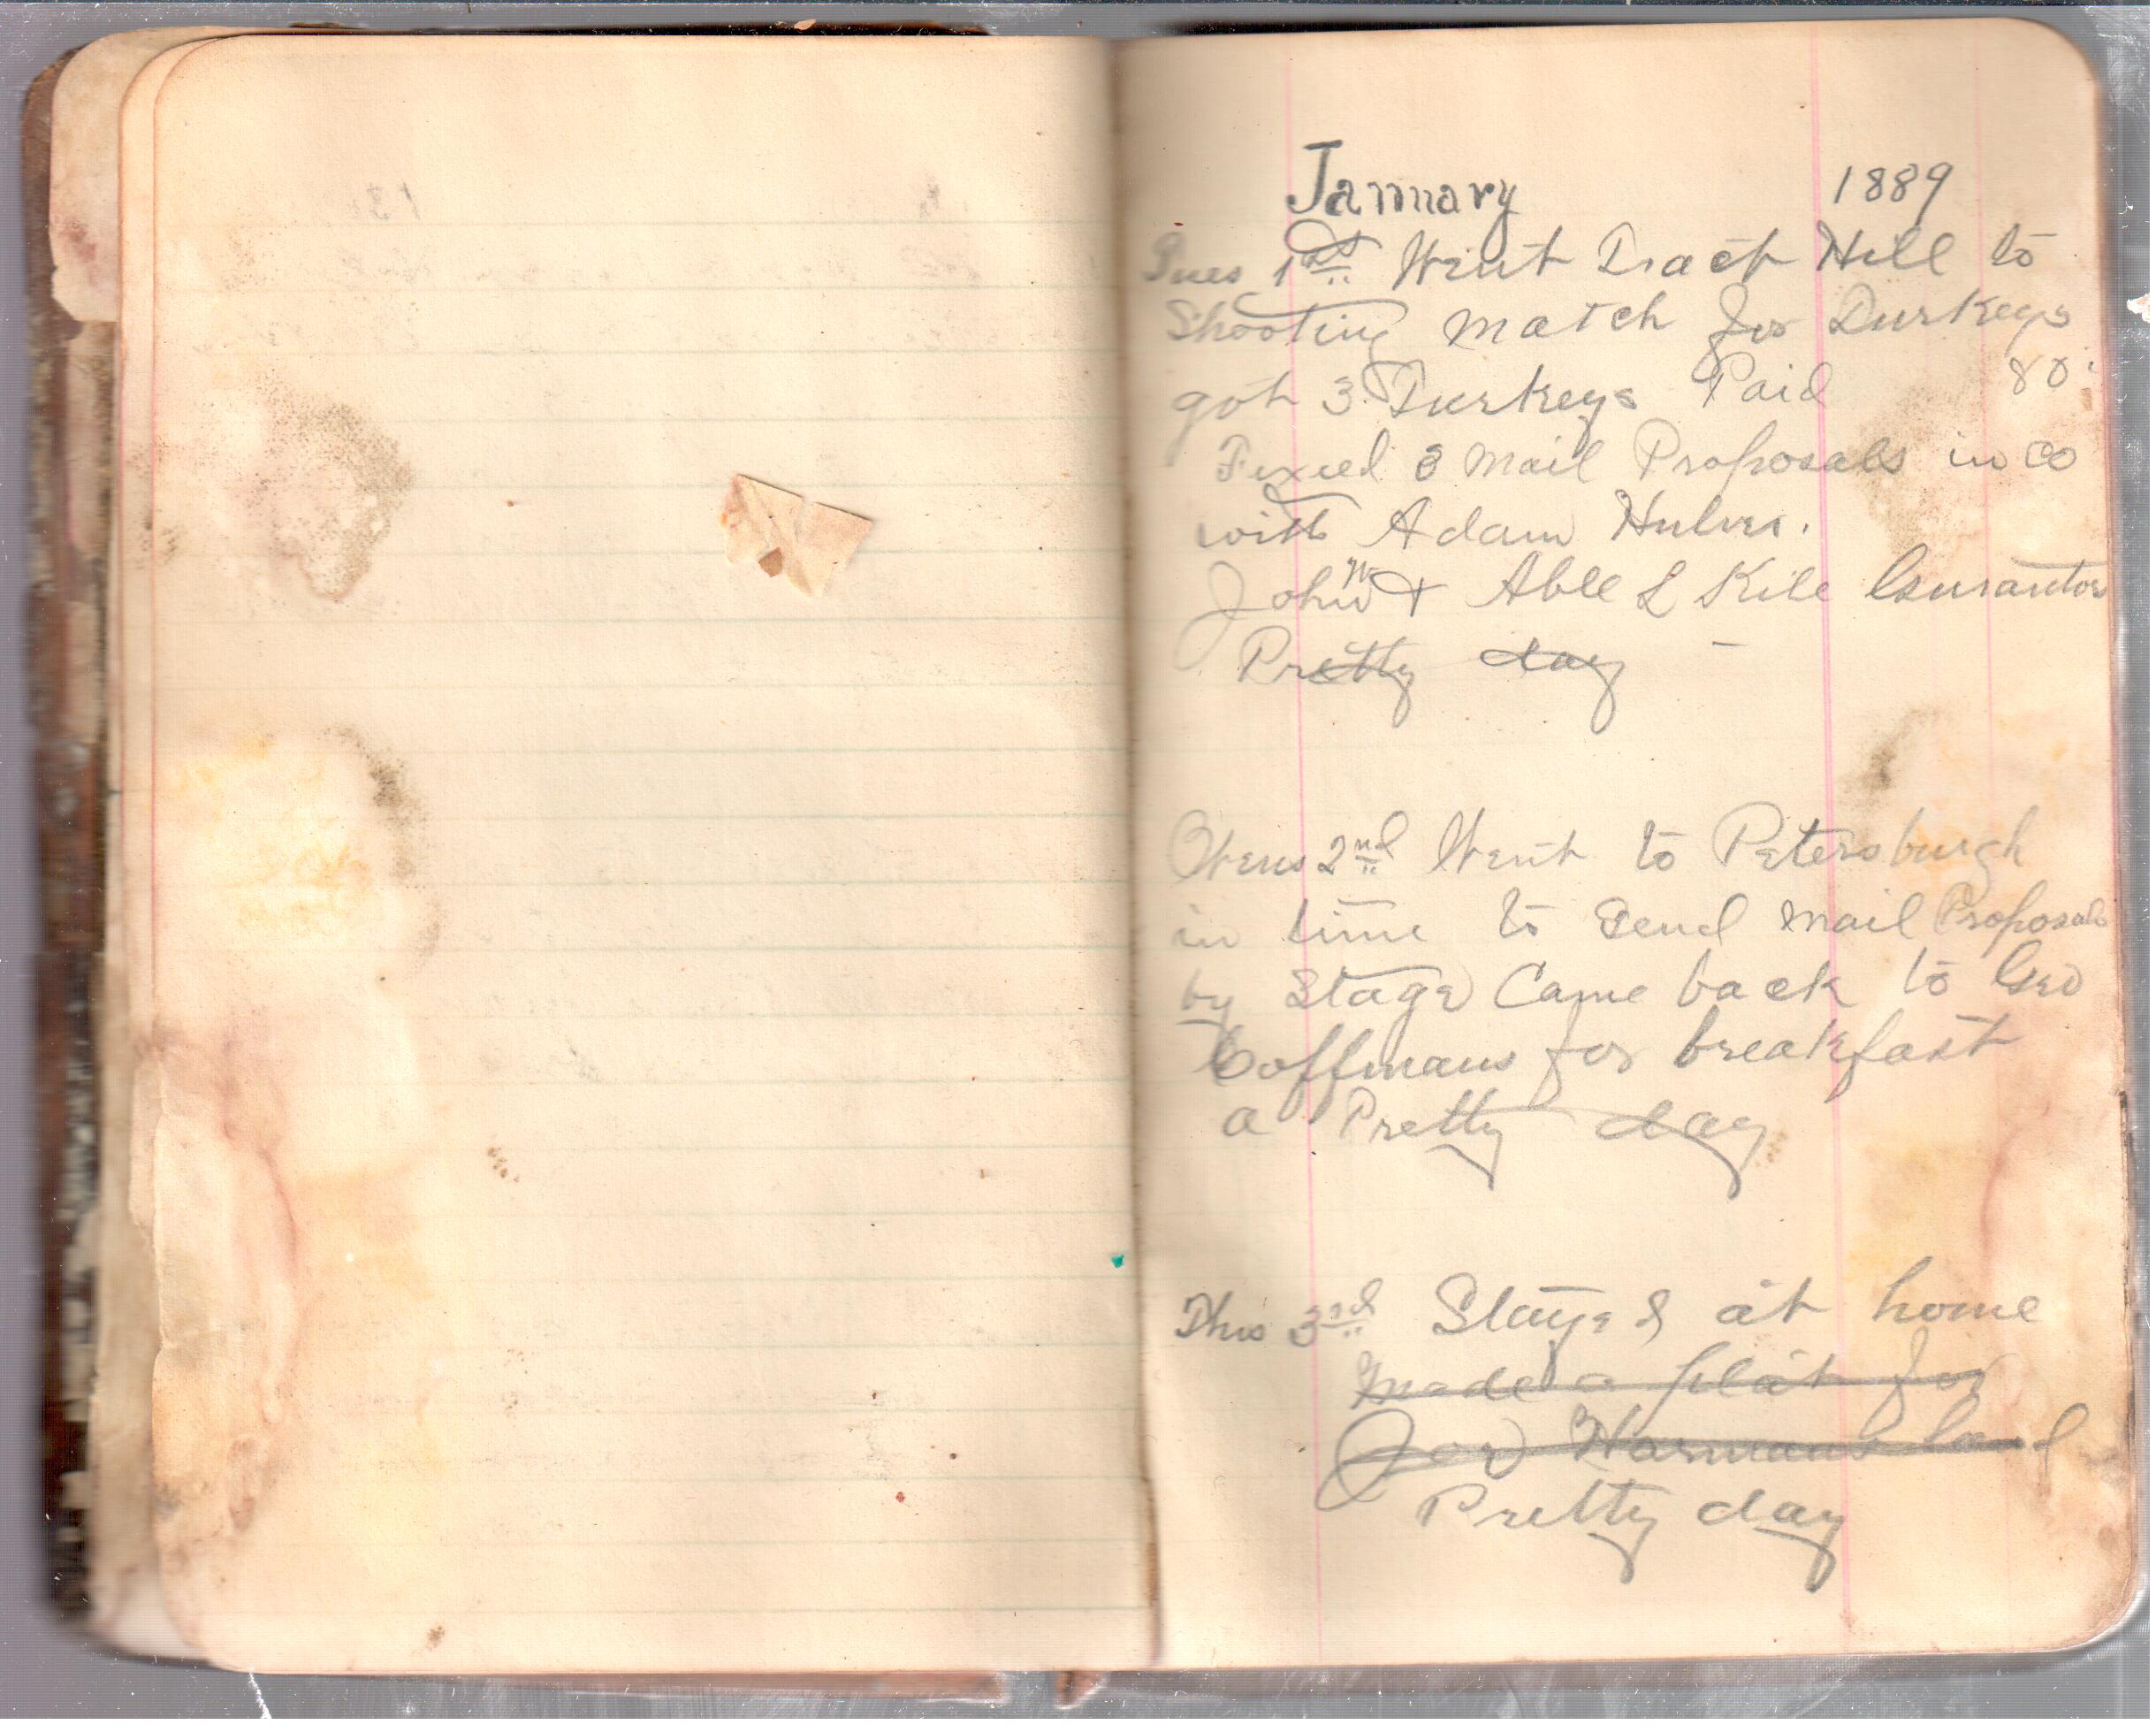 January 1889
Tues 1st Went Tract Hill to
Shooting Match for Turkeys
got 3 Turkeys Paid 80
Fixed 3 Mail Proposals in co
with Adam Hulver.
John W & Able L Kile Gurantors
Pretty day
Wens 2nd Went to Petersburgh
in time to Send Mail Proposals
by Stage Came back to Geo
Coffmans for breakfast
a Pretty day
Thus 3rd Stayed at home
Made a plat for
Joe Harmans land
Pretty day